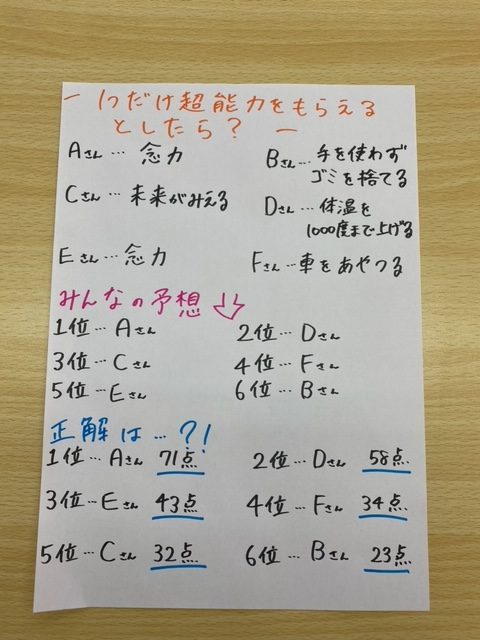 ― 1つだけ超能力をもらえる
としたら? ―
Aさん… 念力
Bさん… 手を使わず
ゴミを捨てる
Cさん… 未来がみえる
Dさん… 体温を
1000度まで上げる
Eさん… 念力
Fさん… 車をあやつる
みんなの予想
1位… Aさん
2位… Dさん
3位… Cさん
4位… Fさん
5位… Eさん
6位… Bさん
正解は…?!
1位… Aさん 71点
2位… Dさん 58点
3位… Eさん 43点
4位… Fさん 34点
5位… Cさん 32点
6位… Bさん 23点